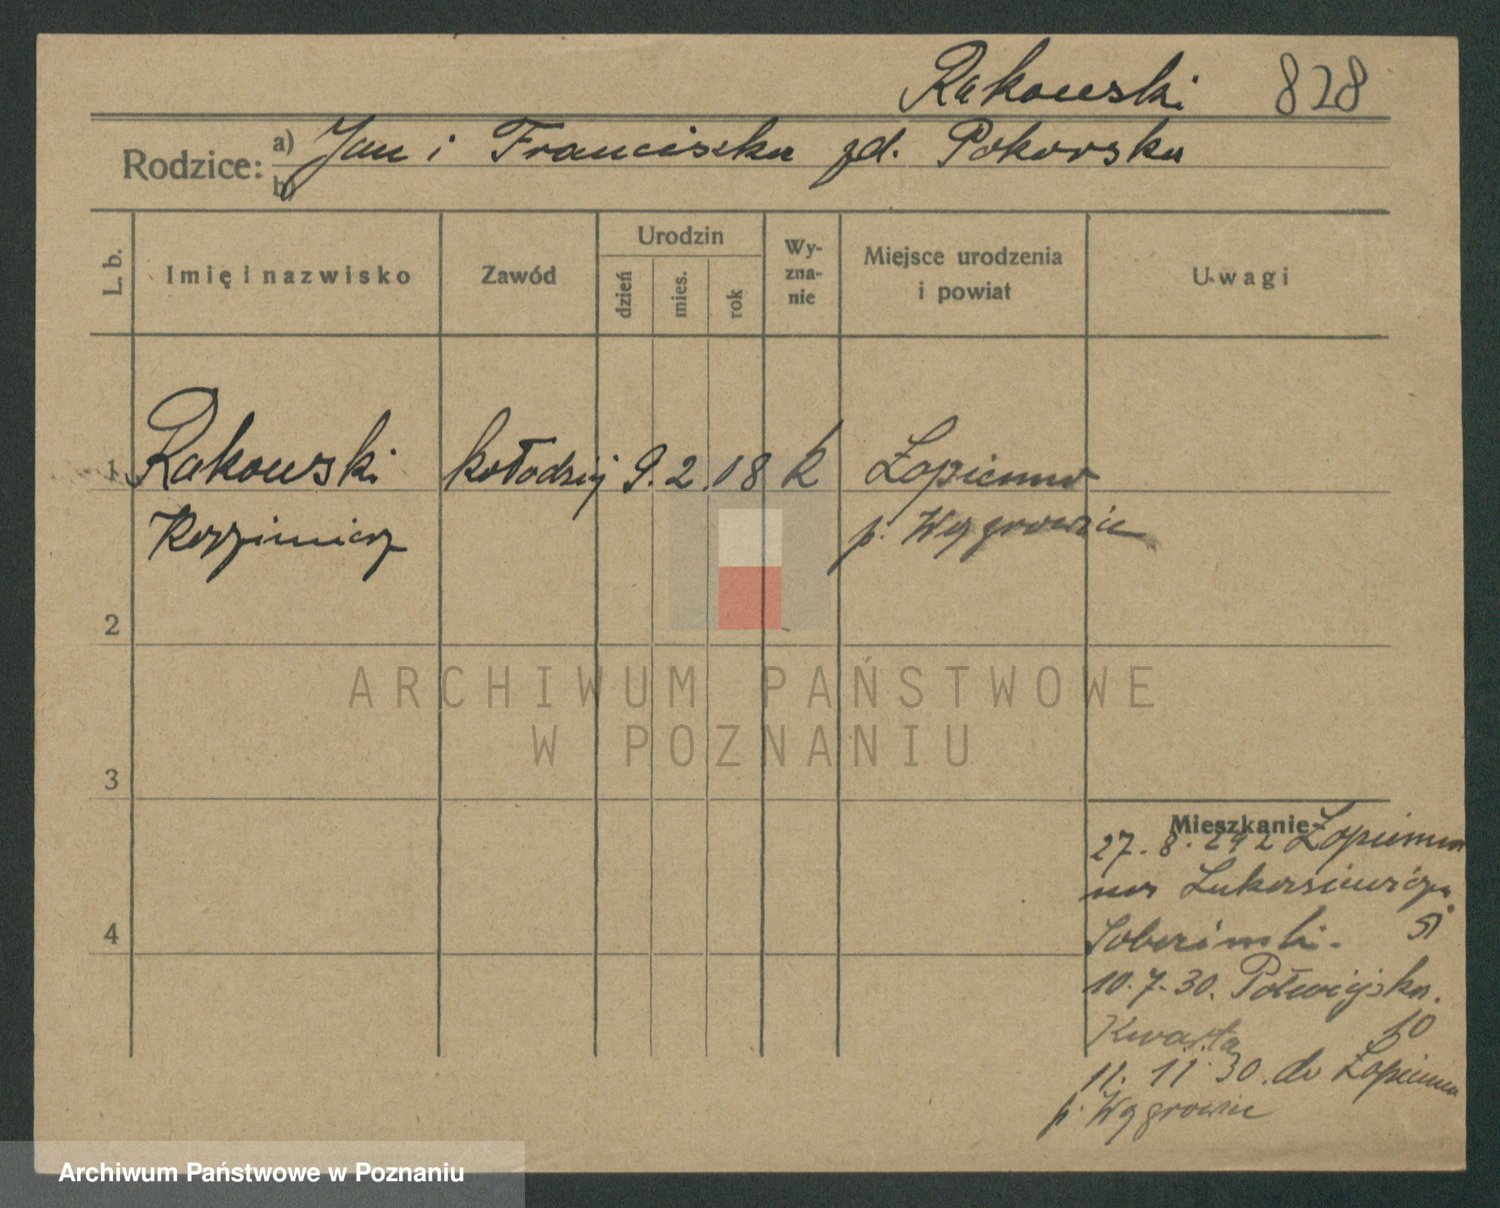 Rakowski 828
Rodzice: a) Jan i Franciszka zd. Pokorska
b)
L. b. Imię i nazwisko Zawód Urodzin dzień mies. rok Wy-zna-nie Miejsce urodzenia i powiat Uwagi
1 Rakowski kołodziej 9. 2. 18 k Łopienno
Kazimierz p. Wągrowiec
2
ARCHIWUM PAŃSTWOWE
W POZNANIU
3
Mieszkanie
27. 8. Łopienno
4
10. 7. 30. Półwiejska.
Kwarta 10
11. 11. 30. do Łopienna
p. Wągrowiec
Archiwum Państwowe w Poznaniu